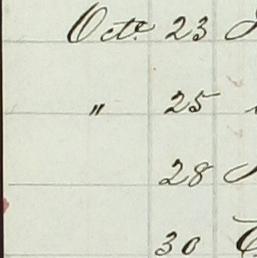 Octr. 23
" 25
28
30